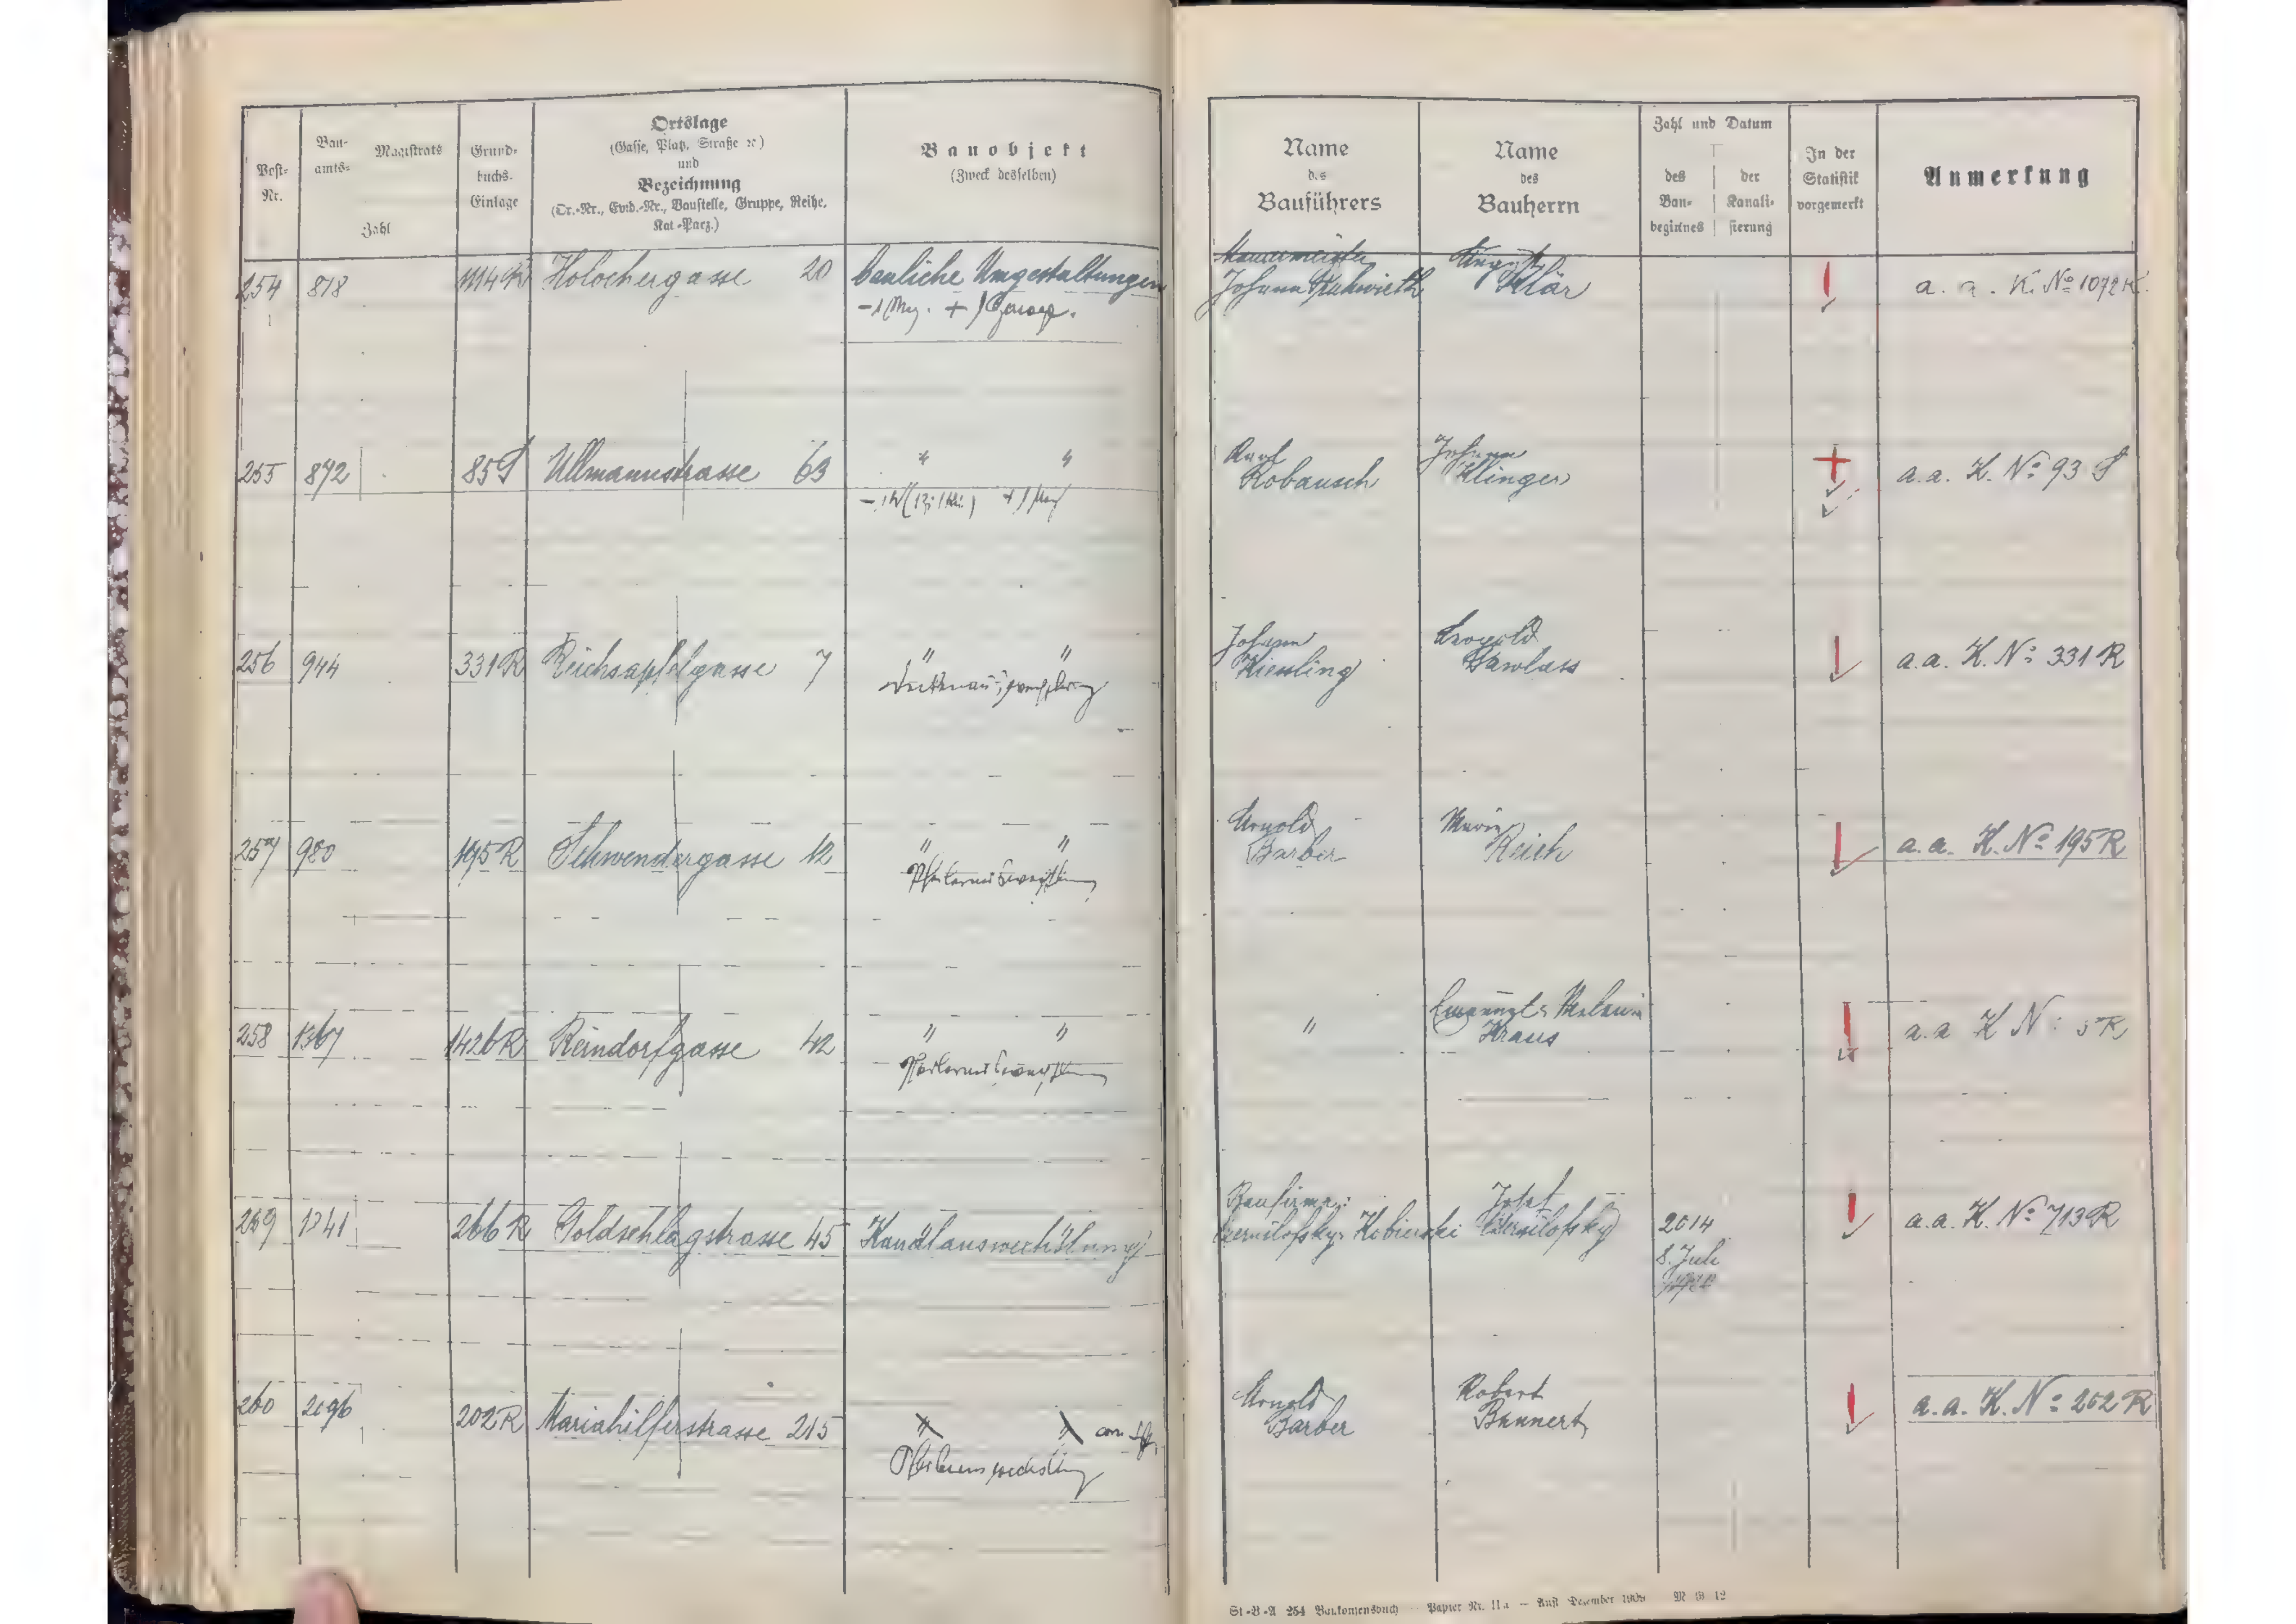 Post-
Nr.
Bau-
amts-
Magistrats
Zahl
Grund-
buchs-
Einlage
Ortslage
(Gasse, Platz, Straße ꝛc)
und
Bezeichnung
(Or.-Nr., Evid.-Nr., Baustelle, Gruppe, Reihe,
Kat.-Parz.)
Bauobjekt
(Zweck desselben)
Name
des
Bauführers
Name
des
Bauherrn
Zahl und Datum
des
Bau-
beginnes
der
Kanali-
sierung
In der
Statistik
vorgemerkt
Anmerkung
254 818 1114 R Holochergasse 20 bauliche Umgestaltungen
Maurermeister
Johann
August
Klär
a. a. K. No 1072 R.
255 872 85 S Ullmannstrasse 63 " "
Karl
Robausch
Johann
Klinger
a. a. K. No: 93 S
256 944 331 R Reichsapfelgasse 7 " "
Johann
Kiessling
Leopold
Pawlass
a. a. K. No: 331 R
257 980 195 R Schwendergasse 12 " "
Arnold
Barber
Reich
a. a. K. No 195 R
258 1367 1426 R Reindorfgasse 42 " "
"
Kraus
a. a K N:
259 1241 266 R Goldschlagstrasse 45 Kanalauswechslung
Baufirma:
Josef
2014
8. Juli
a. a. K. No 713 R
260 2096 202 R Mariahilferstrasse 215
Arnold
Barber
Robert
Bannert
a. a. K. No: 202 R
St-B-A 254 Baukonsensbuch — Papier Nr. 11a — Aufl Dezember 1909 M B 12